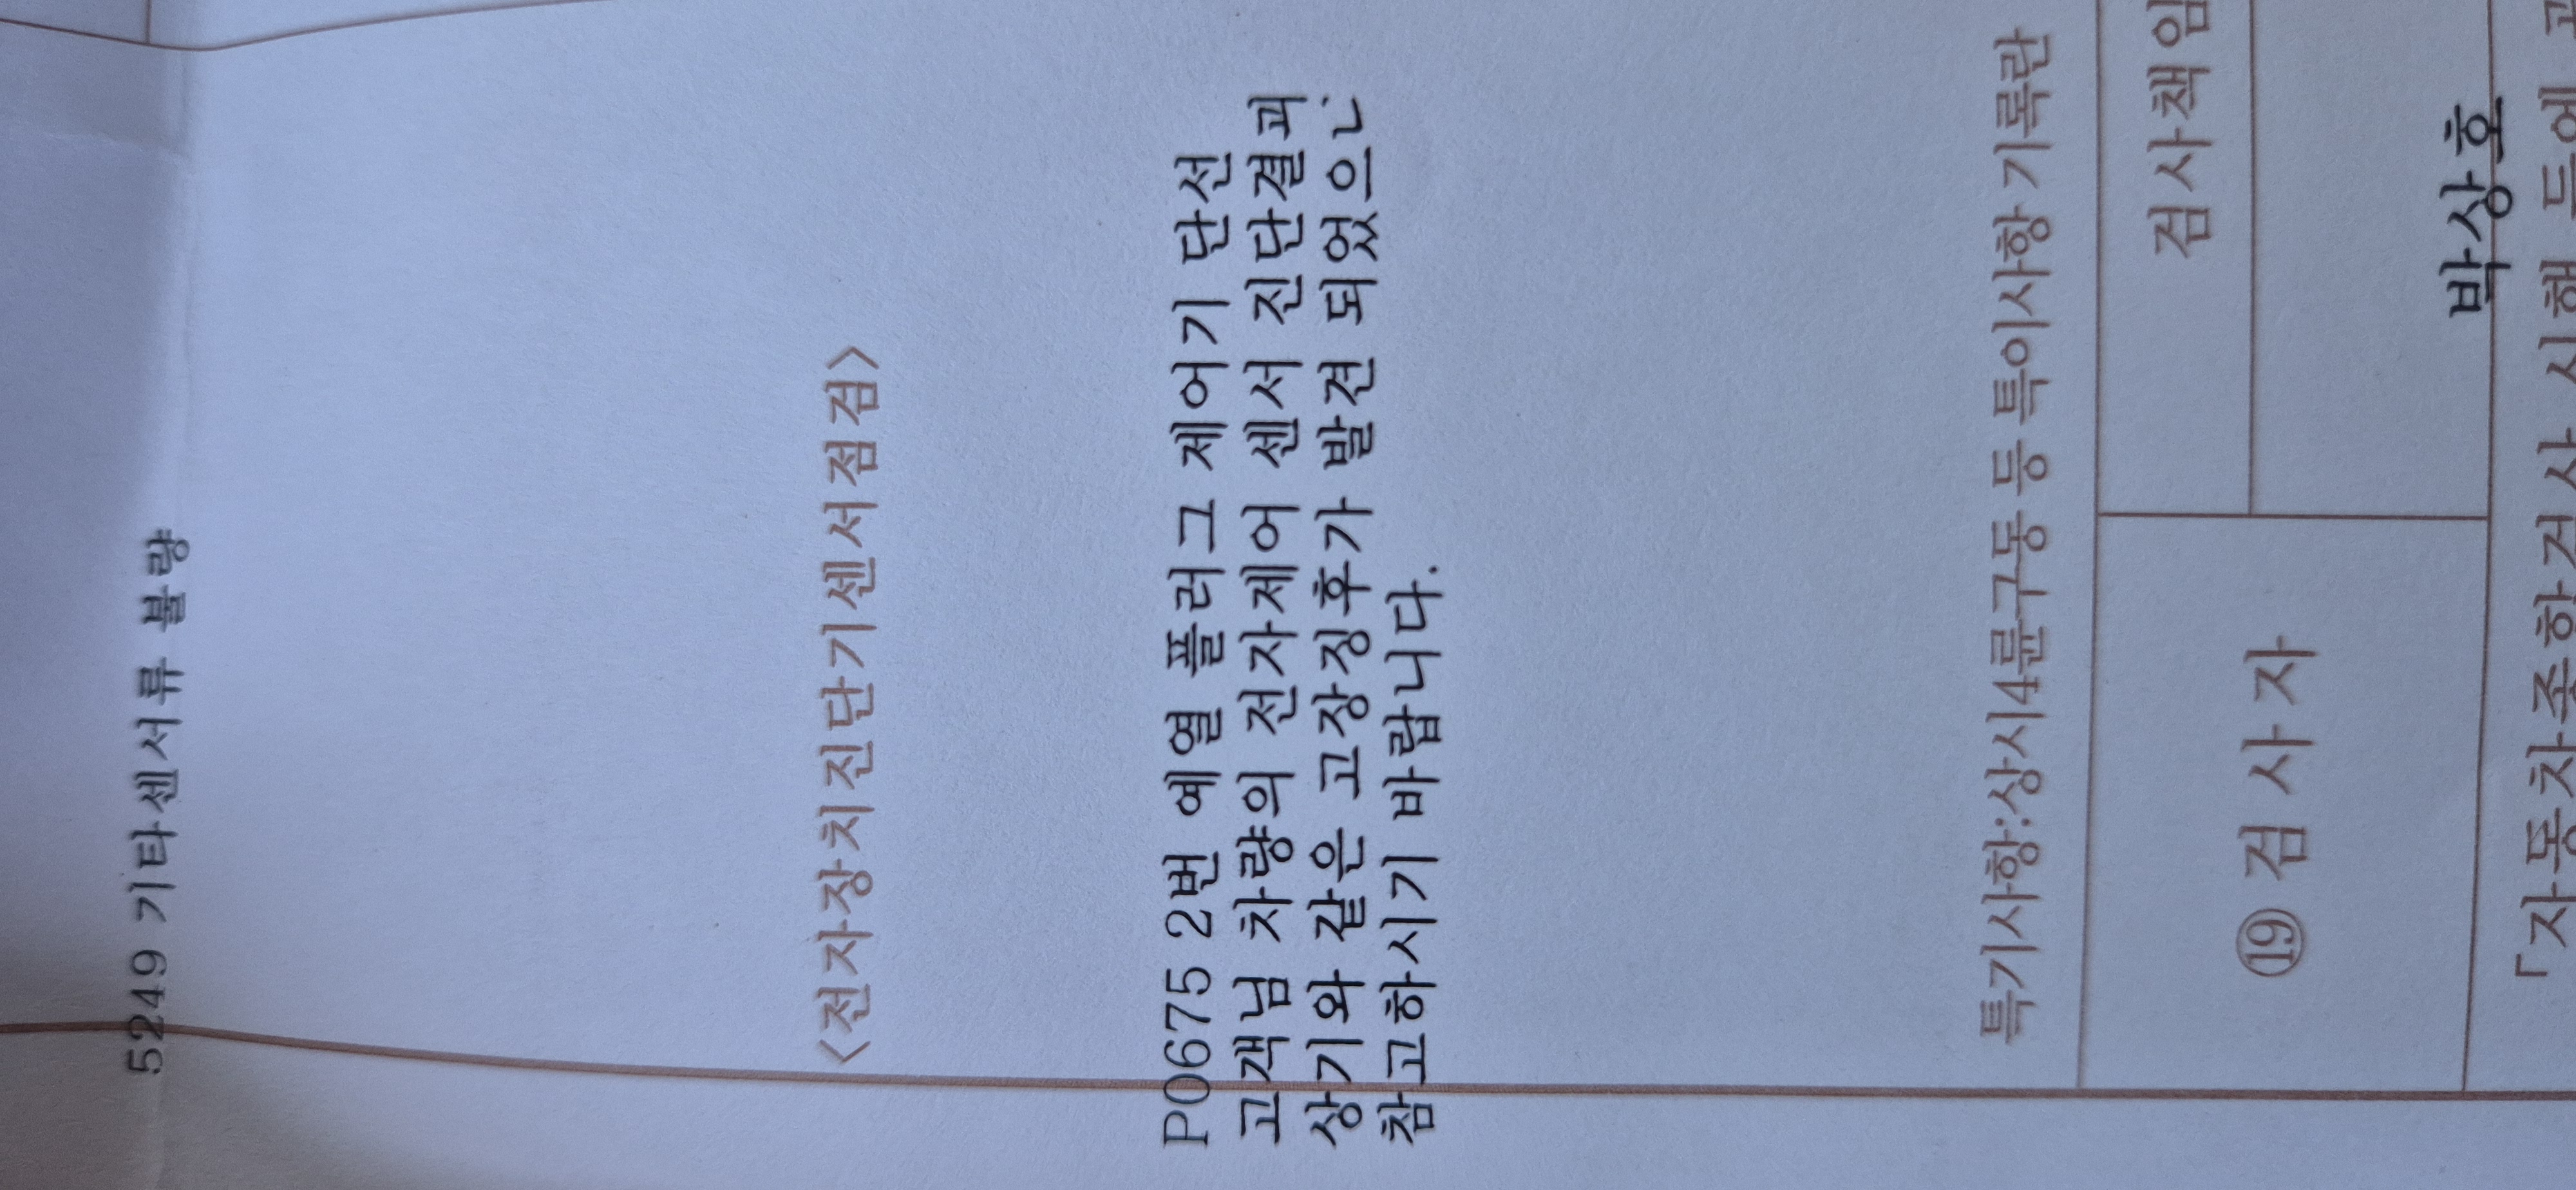 5249 기타센서류 불량
<전자장치진단기센서점검>
P0675 2번 예열 플러그 제어기 단선
고객님 차량의 전자제어 센서 진단결과
상기와 같은 고장징후가 발견 되었으니
참고하시기 바랍니다.
특기사항:상시4륜구동 등 특이사항 기록란
⑲ 검 사 자
검사책임
박상호
「자동차종합검사 시행 등에